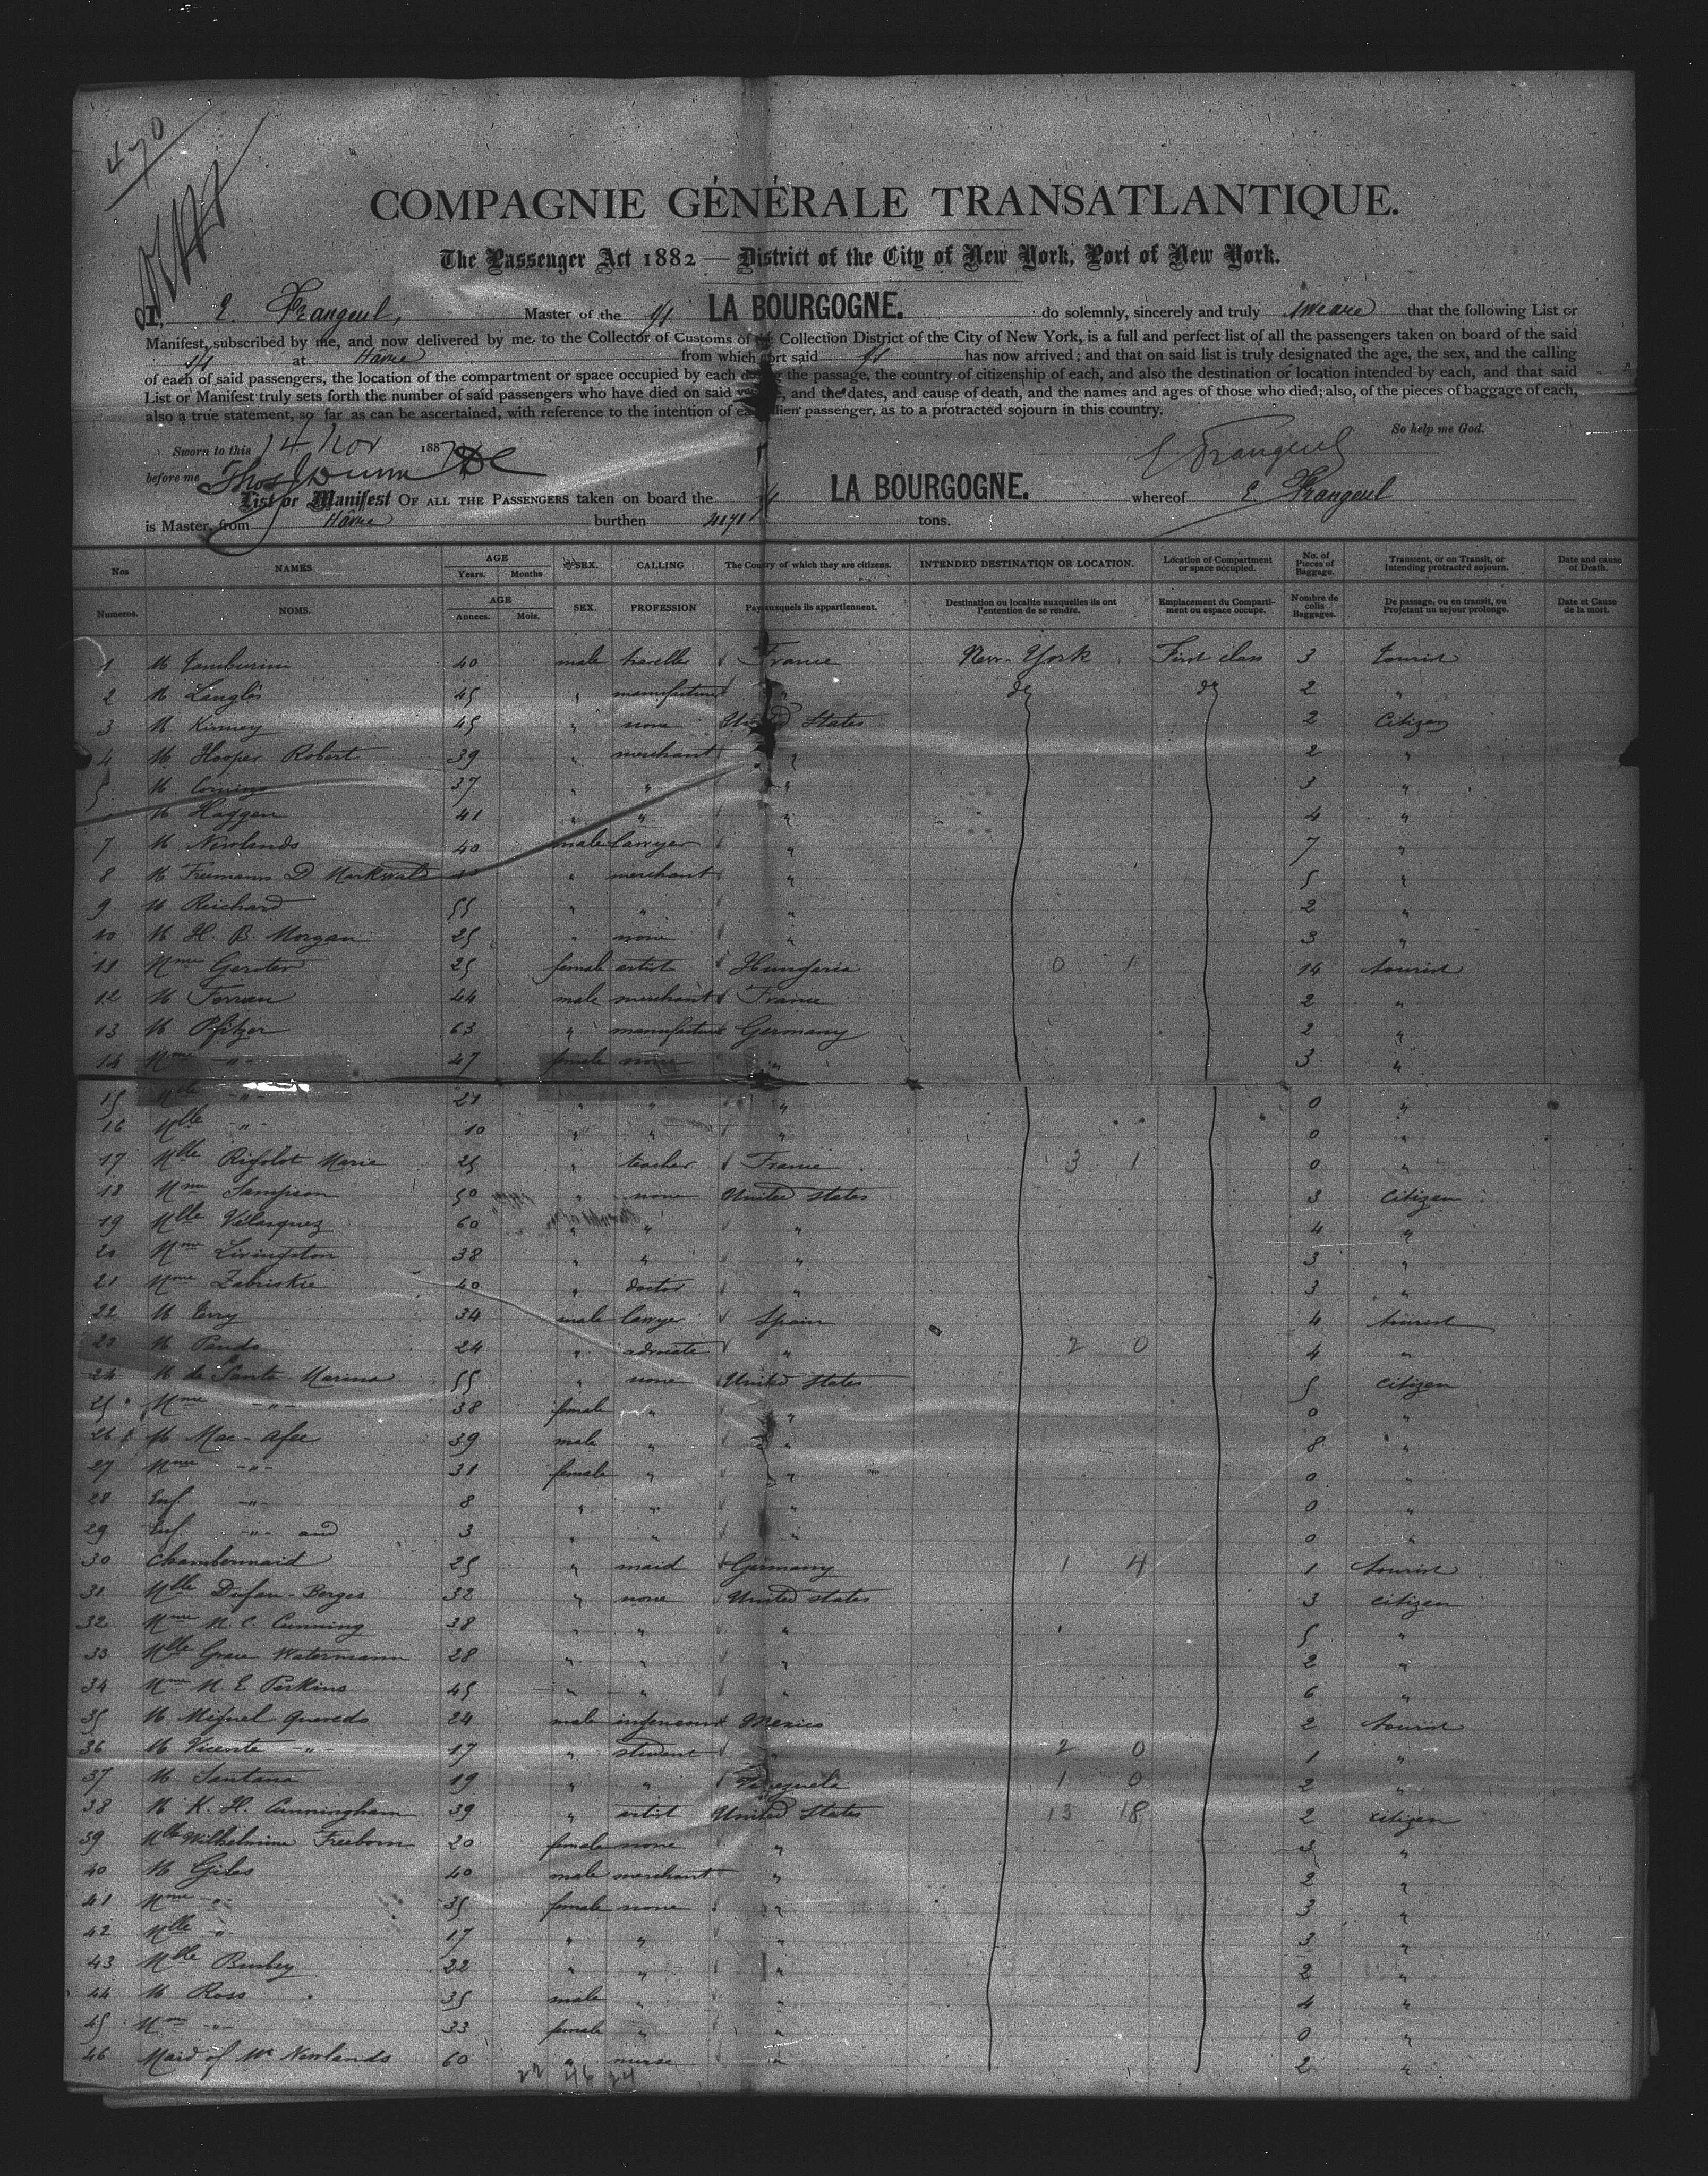 470
COMPAGNIE GÉNÉRALE TRANSATLANTIQUE.
The Passenger Act 1882 — District of the City of New York, Port of New York.
I, E. Frangeul, Master of the S/S LA BOURGOGNE. do solemnly, sincerely and truly swear that the following List or
Manifest, subscribed by me, and now delivered by me to the Collector of Customs of the Collection District of the City of New York, is a full and perfect list of all the passengers taken on board of the said
S/S at Havre from which port said S/S has now arrived; and that on said list is truly designated the age, the sex, and the calling
of each of said passengers, the location of the compartment or space occupied by each during the passage, the country of citizenship of each, and also the destination or location intended by each, and that said
List or Manifest truly sets forth the number of said passengers who have died on said voyage, and the dates, and cause of death, and the names and ages of those who died; also, of the pieces of baggage of each,
also a true statement, so far as can be ascertained, with reference to the intention of each alien passenger, as to a protracted sojourn in this country.
So help me God.
Sworn to this 14 Nov 1887
E Frangeul
before me Thos J Dunn DC
List or Manifest OF ALL THE PASSENGERS taken on board the S/S LA BOURGOGNE. whereof E. Frangeul
is Master, from Havre burthen 4171 tons.
Nos NAMES AGE Years. Months SEX. CALLING The Country of which they are citizens. INTENDED DESTINATION OR LOCATION. Location of Compartment or space occupied. No. of Pieces of Baggage. Transient, or on Transit, or Intending protracted sojourn. Date and cause of Death.
Numeros. NOMS. AGE Annees. Mois. SEX. PROFESSION Pays auxquels ils appartiennent. Destination ou localite auxquelles ils ont l'entention de se rendre. Emplacement du Compartiment ou espace occupe. Nombre de colis Baggages. De passage, ou en transit, ou Projetant un sejour prolonge. Date et Cause de la mort.
1 M Tamburini 40 male traveller France New-York First class 3 tourist
2 M Langlois 45 " manufacturer " do do 2 "
3 M Kinney 45 " none United States 2 Citizen
4 M Hooper Robert 39 " merchant " 2 "
5 M Corning 37 " " " 3 "
M Haggen 41 " " " 4 "
7 M Newlands 40 male lawyer " 7 "
8 M Freemann D Markwald " merchant " 5 "
9 M Reichard 55 " " " 2 "
10 M H. B. Morgan 25 " none " 3 "
11 Mme Gerster 25 female artist Hungaria 0 1 14 tourist
12 M Ferran 44 male merchant France 2 "
13 M Pfitzer 63 " manufacturer Germany 2 "
14 Mme -"- 47 female none " 3 "
15 Mlle -"- 21 " " " 0 "
16 Mlle -"- 10 " " " 0 "
17 Mlle Rigolot Marie 25 " teacher France 3 1 0 "
18 Mme Sampson 50 " none United States 3 Citizen
19 Mlle Velasquez 60 " " " 4 "
20 Mme Livingston 38 " " " 3 "
21 Mme Zabriskie 40 " doctor " 3 "
22 M Terry 34 male lawyer Spain 4 tourist
23 M Pando 24 " advocate " 2 0 4 "
24 M de Santa-Marina 55 " none United States 5 Citizen
25 Mme -"- 38 female " " 0 "
26 M Mac-Afee 39 male " " 8 "
27 Mme -"- 31 female " " 0 "
28 Enf -"- 8 " " " 0 "
29 Enf. -"- and 3 " " " 0 "
30 Chambermaid 25 " maid Germany 1 4 1 tourist
31 Mlle Dufau-Berges 32 " none United States 3 citizen
32 Mme N. C. Cunning 38 " " " 5 "
33 Mlle Grace Watermann 28 " " " 2 "
34 Mme N. E. Perkins 45 " " " 6 "
35 M Miguel Quevedo 24 male ingenieur Mexico 2 tourist
36 M Vicente -"- 17 " student " 2 0 1 "
37 M Santana 19 " " Venezuela 1 0 2 "
38 M K. H. Cunningham 39 " artist United States 13 18 2 citizen
39 Mlle Wilhelmine Freeborn 20 female none " 3 "
40 M Giles 40 male merchant " 2 "
41 Mme -"- 35 female none " 3 "
42 Mlle -"- 17 " " " 3 "
43 Mlle Burbey 22 " " " 2 "
44 M Ross 35 male " " 4 "
45 Mme -"- 33 female " " 0 "
46 Maid of Mr Newlands 60 " nurse " 2 "
22 46 24